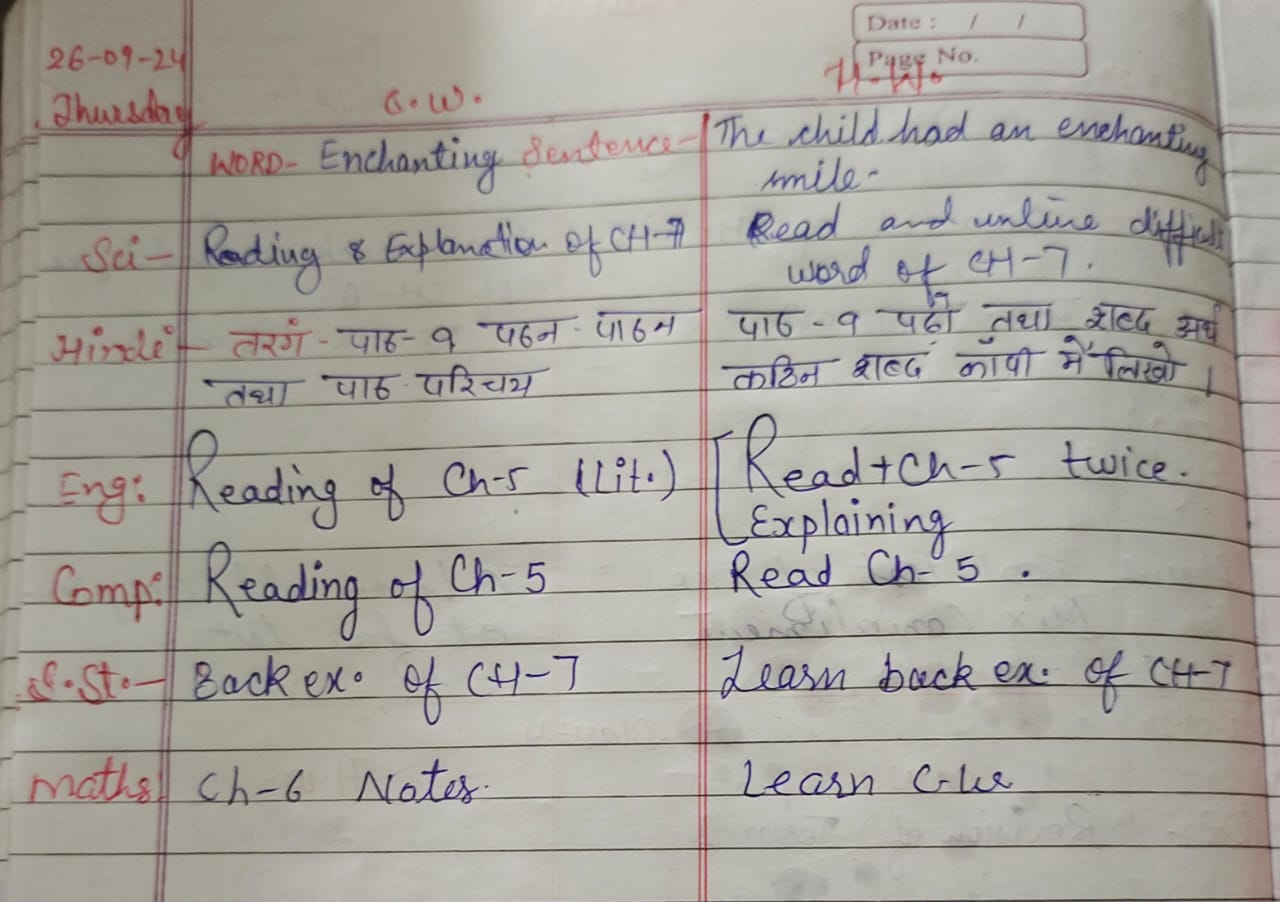 Date : / /
Page No.
26-09-24
Thursday
C.W.
H.W.
WORD- Enchanting Sentence- The child had an enchanting
smile-
Sci- Reading & Explanation of CH-7 Read and unline difficult
word of CH-7.
Hindi- तरगं - पाठ-१ पठन - पाठन पाठ - १ पढ़ो तथा शब्द अर्थ
तथा पाठ परिचय कठिन शब्द कॉपी में लिखो ।
Eng: Reading of Ch-5 (Lit.) Read+Ch-5 twice.
Explaining
Comp: Reading of Ch-5 Read Ch-5 .
S.St.- Back ex. of CH-7 Learn back ex. of CH-7
Maths: Ch-6 Notes. Learn C.W